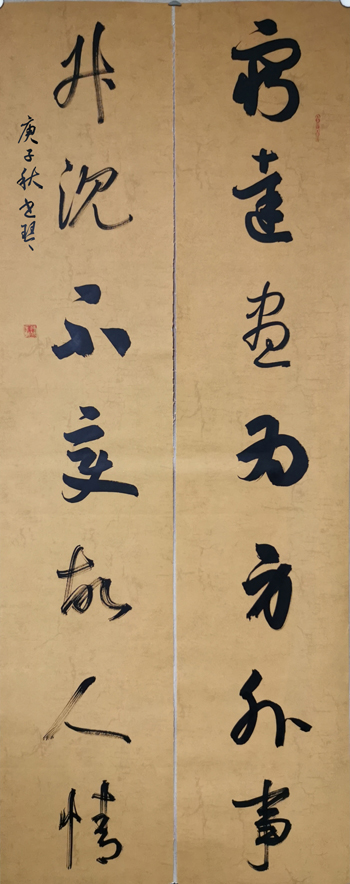 穷達盡为方外事
升沉不变故人情
庚子秋